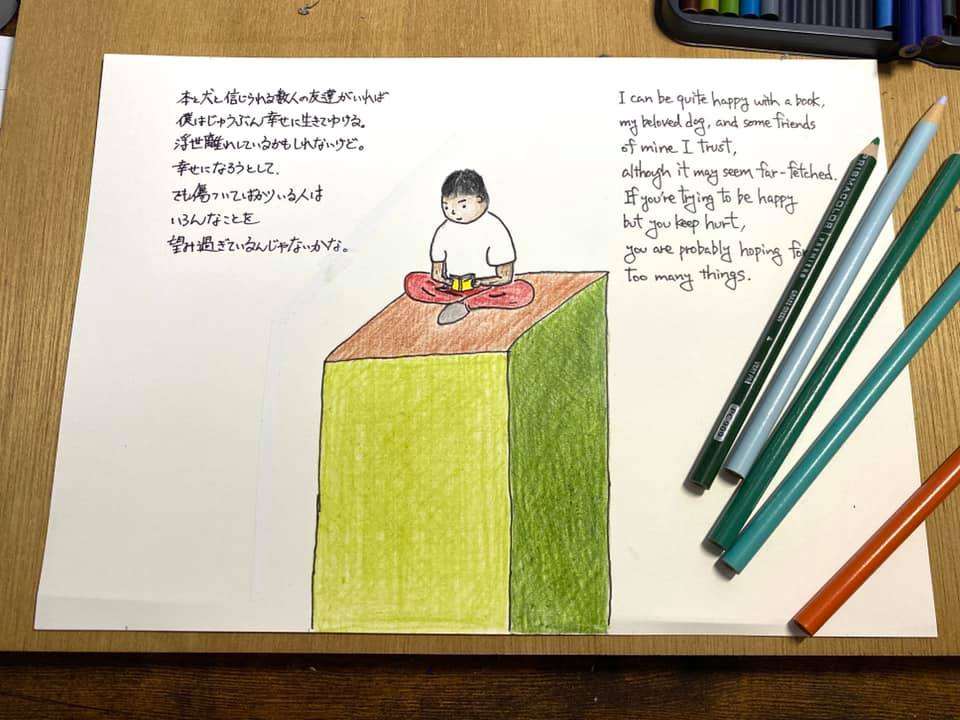 本と犬と信じられる数人の友達がいれば
僕はじゅうぶん幸せに生きてゆける。
浮世離れしているかもしれないけど。
幸せになろうとして、
でも傷ついてばかりいる人は
いろんなことを
望み過ぎているんじゃないかな。
I can be quite happy with a book,
my beloved dog, and some friends
of mine I trust,
although it may seem far-fetched.
If you're trying to be happy
but you keep hurt,
you are probably hoping for
too many things.
PRISMACOLOR PREMIER
PC909